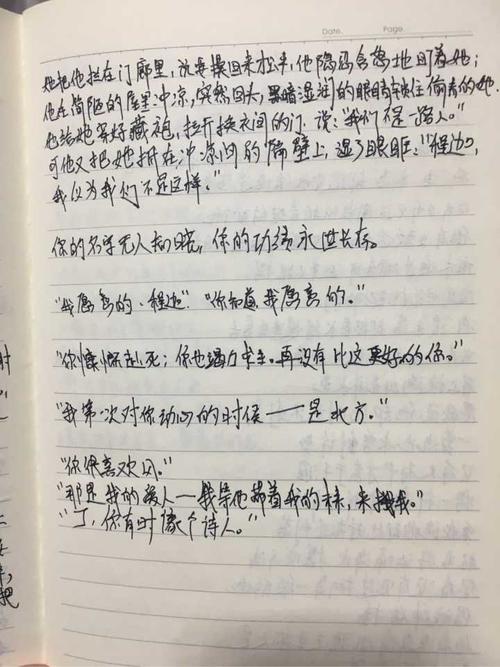 Date. Page.
她把他拦在门廊里，说要摸回来松手，他隐忍含怒地盯着她；
他在简陋的屋里冲凉，突然回头，黑暗湿润的眼睛锁住偷看的她。
他给她穿好藏袍，拉开换衣间的门，说：“我们不是一路人。”
可他又把她抓在冲凉间的隔壁上，湿了眼眶：“程迦，
我以为我们不是这样。”
你的名字无人知晓，你的功绩永世长存。
“我属离的，程迦” “你知道我属离的。”
“你慷慨赴死；你也竭力求生。再没有比这更好的你。”
“我第一次对你动心的时候——是北方。”
“你很喜欢风。”
“那是我的爱人——我等他带着我的 来找我。”
“丁，你有时像个诗人。”
时
把